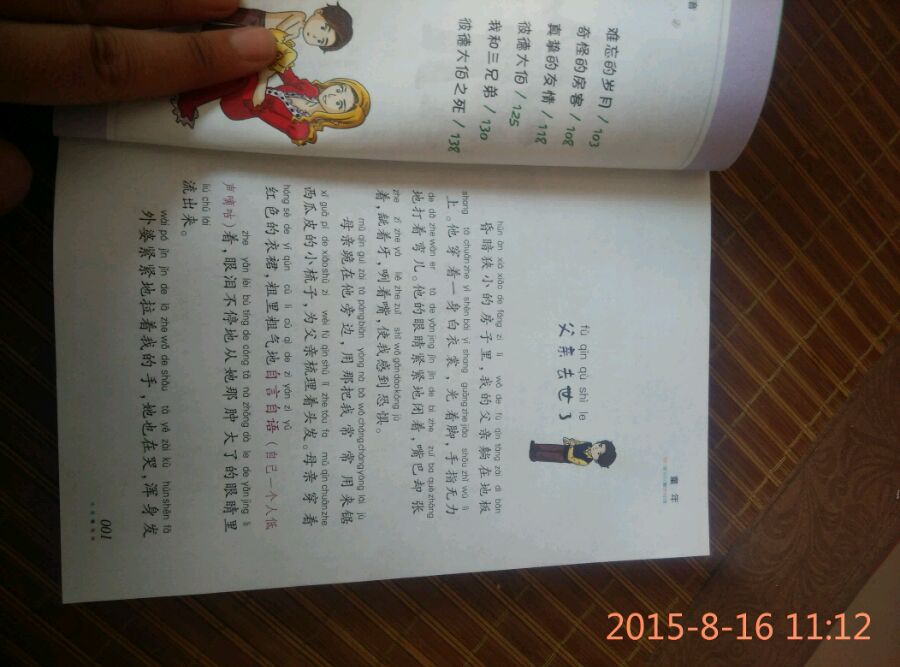 音
难忘的岁月 / 103
奇怪的房客 / 108
真挚的友情 / 118
彼德大伯 / 125
我和三兄弟 / 130
彼德大伯之死 / 138
童年
fù qīn qù shì le
父亲去世了
hūn àn xiá xiǎo de fáng zi lǐ wǒ de fù qīn tǎng zài dì bǎn
昏暗狭小的房子里，我的父亲躺在地板
shang tā chuān zhe yì shēn bái yī shang guāng zhe jiǎo shǒu zhǐ wú lì
上。他穿着一身白衣裳，光着脚，手指无力
de dǎ zhe wān er tā de yǎn jing jǐn jǐn de bì zhe zuǐ ba què zhāng
地打着弯儿。他的眼睛紧紧地闭着，嘴巴却张
zhe zī zhe yá liě zhe zuǐ shǐ wǒ gǎn dào kǒng jù
着，龇着牙，咧着嘴，使我感到恐惧。
mǔ qīn guì zài tā páng biān yòng nà bǎ wǒ cháng cháng yòng lái jù
母亲跪在他旁边，用那把我常常用来锯
xī guā pí de xiǎo shū zi wèi fù qīn shū lǐ zhe tóu fa mǔ qīn chuān zhe
西瓜皮的小梳子，为父亲梳理着头发。母亲穿着
hóng sè de yī qún cū lǐ cū qì de zì yán zì yǔ
红色的衣裙，粗里粗气地自言自语（自己一个人低
zhe yǎn lèi bù tíng de cóng tā nà zhǒng dà le de yǎn jing lǐ
声嘀咕）着，眼泪不停地从她那肿大了的眼睛里
liú chū lái
流出来。
wài pó jǐn jǐn de lā zhe wǒ de shǒu tā yě zài kū hún shēn fā
外婆紧紧地拉着我的手，她也在哭，浑身发
001
2015-8-16 11:12